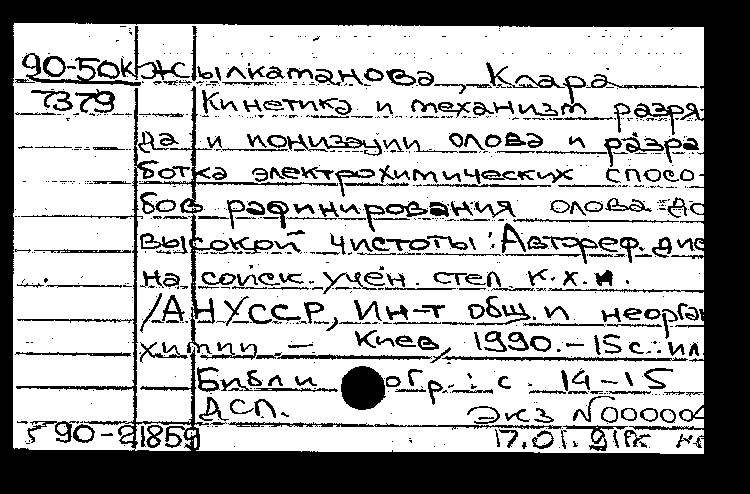 90-50к Жылкаманова, Клара
7379 Кинетика и механизм разря-
да и ионизации олова и разра
ботка электрохимических спосо-
бов рафинирования олова до
высокой чистоты : Автореф. дис
на соиск. учен. степ к.х.н.
/АН УССР, Ин-т общ. и неорган
химии. — Киев, 1990. — 15 с. : ил.
Библиогр. : с. 14-15
ДСП. Экз N000004
90-21859 17.01.91